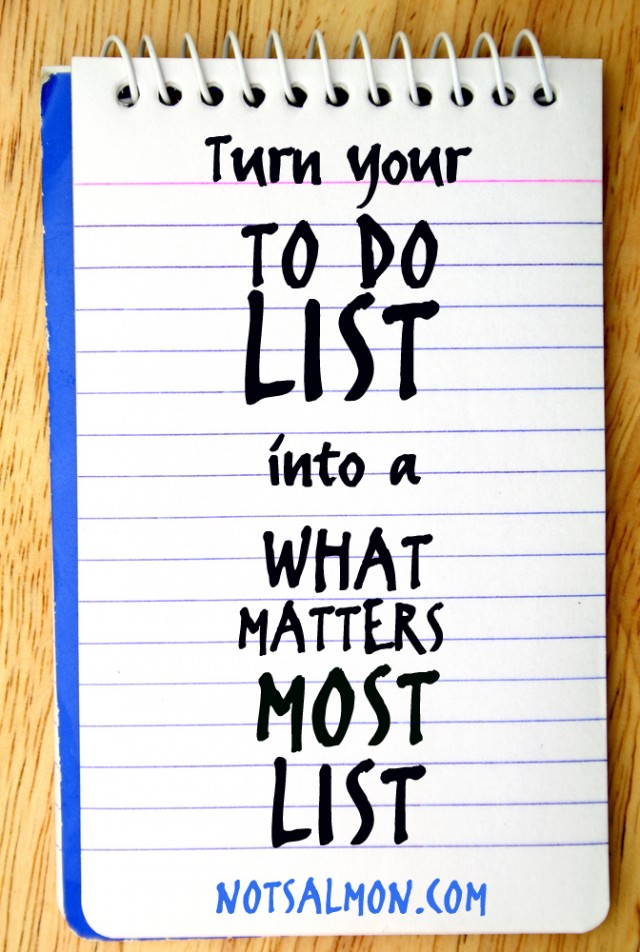 Turn your
TO DO
LIST
into a
WHAT
MATTERS
MOST
LIST
NOTSALMON.COM